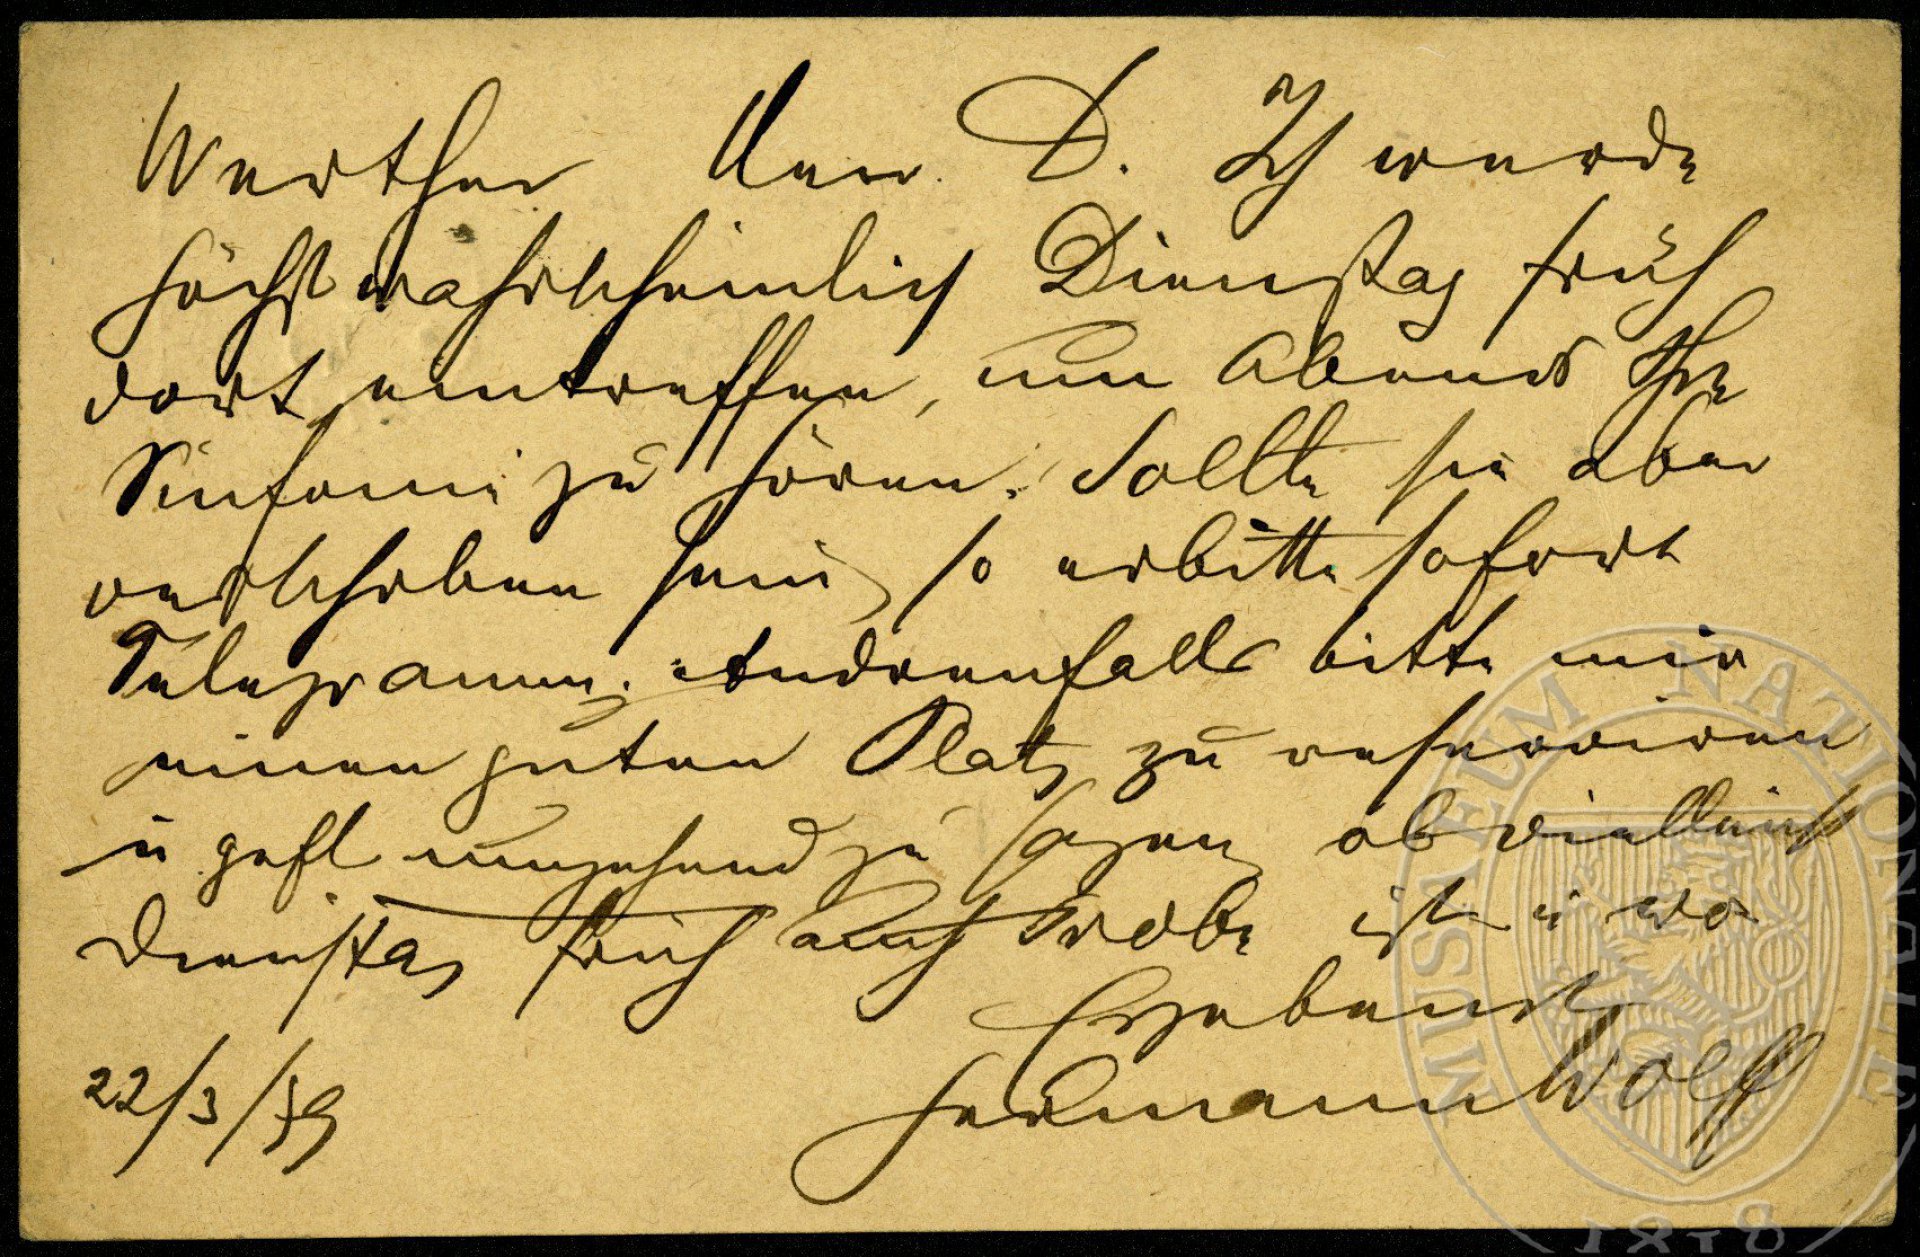 Werther Herr D. Ich werde
höchst wahrscheinlich Dienstag früh
dort eintreffen, um Abends Ihre
Sinfonie zu hören. Sollte sie aber
verschoben sein, so erbitte sofort
Telegramm. Andrenfalls bitte mir
einen guten Platz zu reserviren
u gefl umgehend zu sagen, ob vielleicht
Dienstag früh auch Probe ist u wo
Ergebenst
Hermann Wolff
22/3/89
MUSAEUM NATIONALE
1818